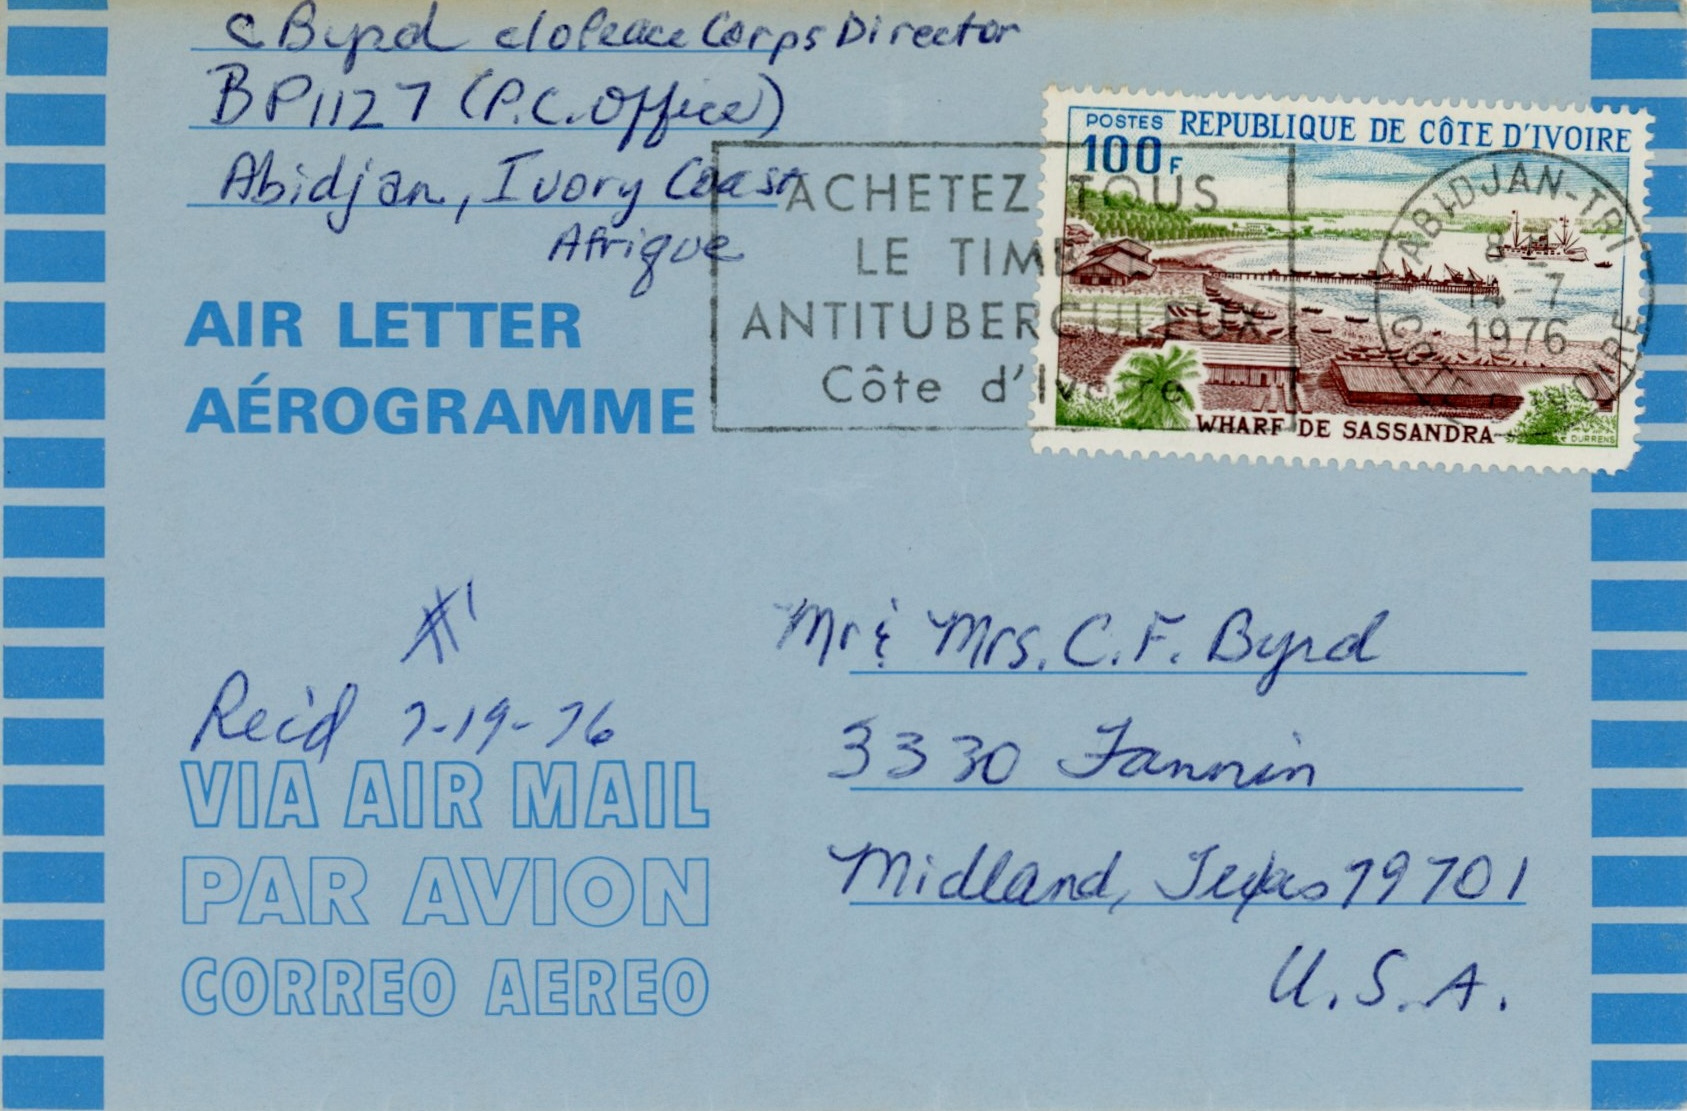 C Byrd c/o Peace Corps Director
BP1127 (P.C. Office)
Abidjan, Ivory Coast
Afrique
AIR LETTER
AÉROGRAMME
ACHETEZ TOUS
LE TIMBRE
ANTITUBERCULEUX
Côte d'Ivoire
POSTES REPUBLIQUE DE CÔTE D'IVOIRE
100F
WHARF DE SASSANDRA
DURRENS
ABIDJAN-TRI
14-7
1976
CÔTE D'IVOIRE
#1
Rec'd 7-19-76
VIA AIR MAIL
PAR AVION
CORREO AEREO
Mr & Mrs. C. F. Byrd
3330 Fannin
Midland, Texas 79701
U.S.A.